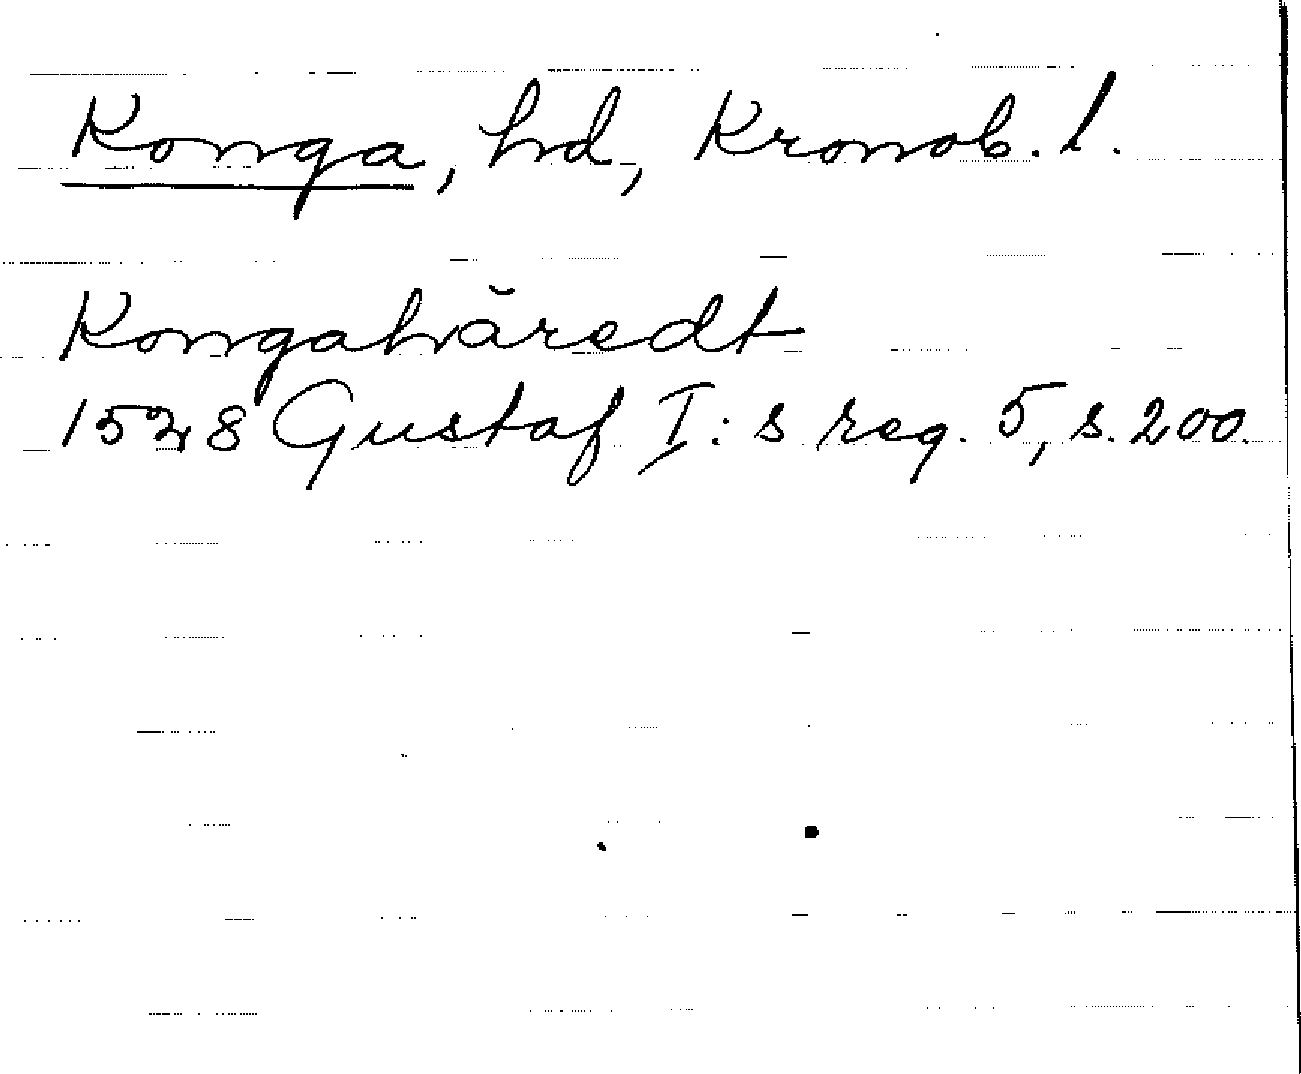 Konga, hd, Kronob. l.
Kongahäredt
1528 Gustaf I:s reg. 5, s. 200.